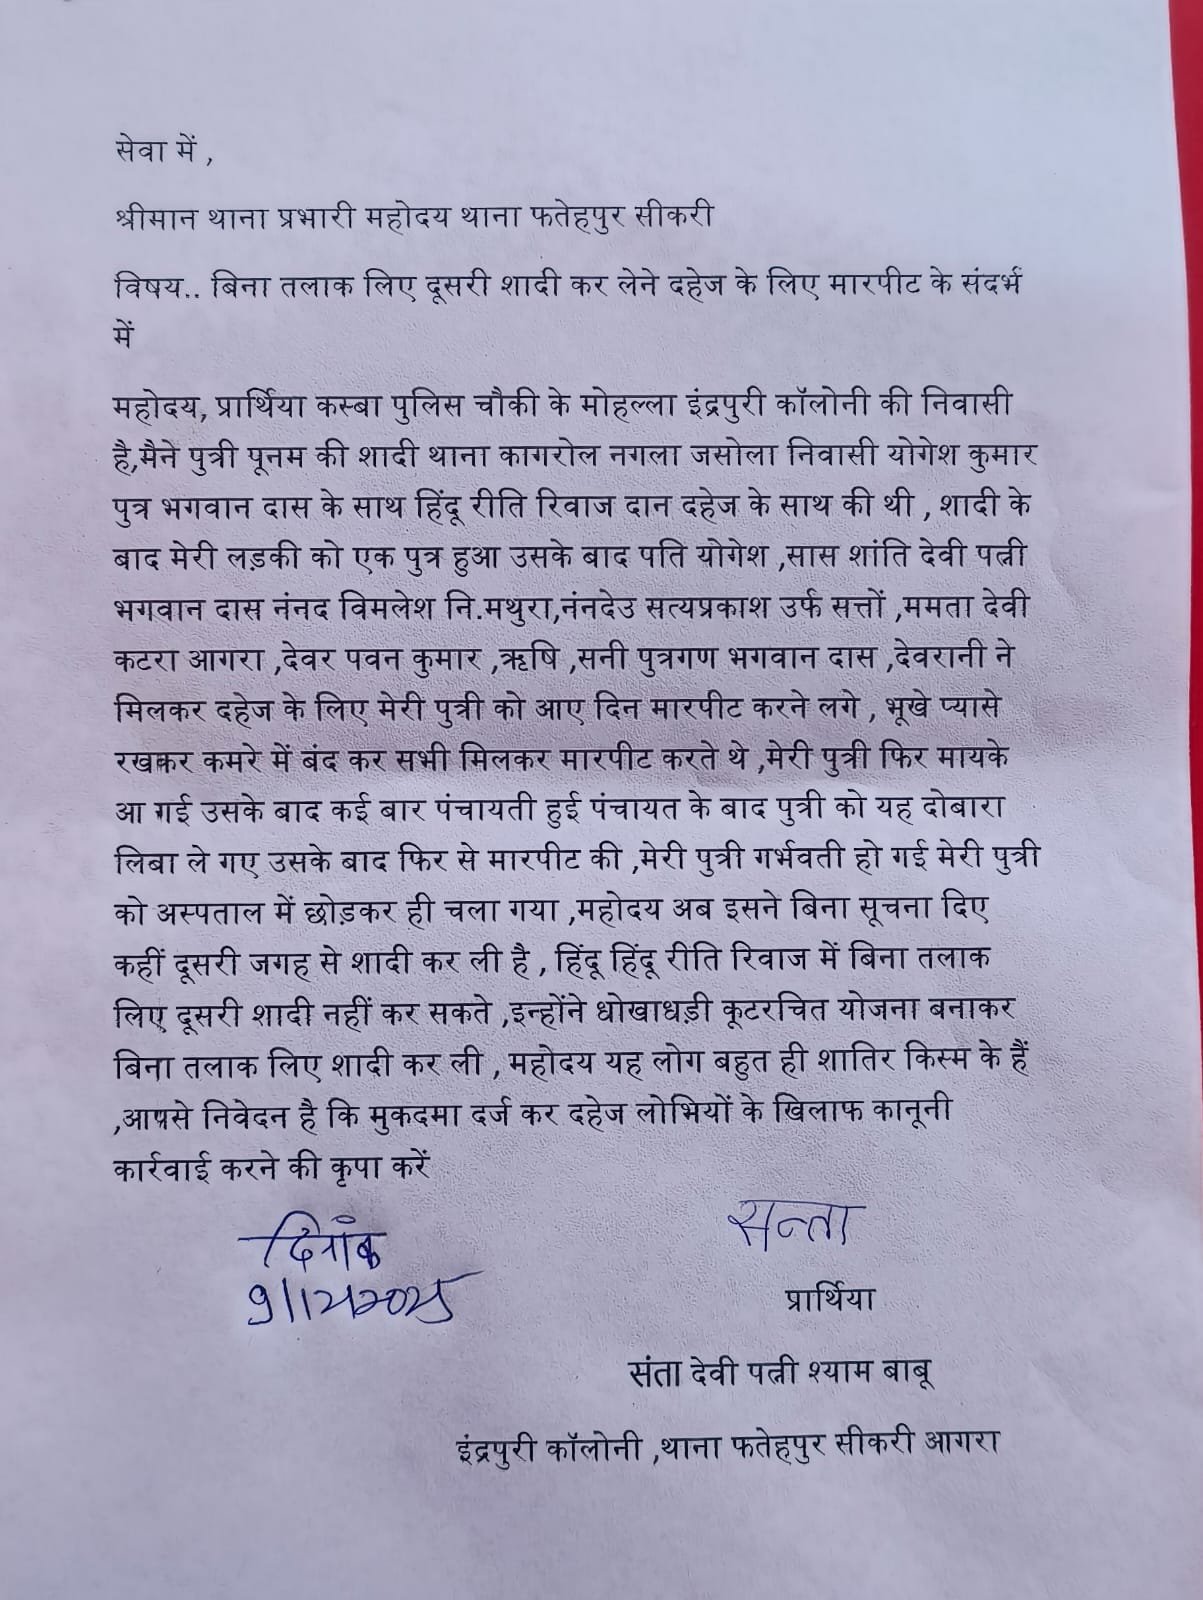 सेवा में ,
श्रीमान थाना प्रभारी महोदय थाना फतेहपुर सीकरी
विषय.. बिना तलाक लिए दूसरी शादी कर लेने दहेज के लिए मारपीट के संदर्भ
में
महोदय, प्रार्थिया कस्बा पुलिस चौकी के मोहल्ला इंद्रपुरी कॉलोनी की निवासी
है,मैने पुत्री पूनम की शादी थाना कागरोल नगला जसोला निवासी योगेश कुमार
पुत्र भगवान दास के साथ हिंदू रीति रिवाज दान दहेज के साथ की थी , शादी के
बाद मेरी लड़की को एक पुत्र हुआ उसके बाद पति योगेश ,सास शांति देवी पत्नी
भगवान दास नंनद विमलेश नि.मथुरा,नंनदेउ सत्यप्रकाश उर्फ सत्तों ,ममता देवी
कटरा आगरा ,देवर पवन कुमार ,ऋषि ,सनी पुत्रगण भगवान दास ,देवरानी ने
मिलकर दहेज के लिए मेरी पुत्री को आए दिन मारपीट करने लगे , भूखे प्यासे
रखकर कमरे में बंद कर सभी मिलकर मारपीट करते थे ,मेरी पुत्री फिर मायके
आ गई उसके बाद कई बार पंचायती हुई पंचायत के बाद पुत्री को यह दोबारा
लिबा ले गए उसके बाद फिर से मारपीट की ,मेरी पुत्री गर्भवती हो गई मेरी पुत्री
को अस्पताल में छोड़कर ही चला गया ,महोदय अब इसने बिना सूचना दिए
कहीं दूसरी जगह से शादी कर ली है , हिंदू हिंदू रीति रिवाज में बिना तलाक
लिए दूसरी शादी नहीं कर सकते ,इन्होंने धोखाधड़ी कूटरचित योजना बनाकर
बिना तलाक लिए शादी कर ली , महोदय यह लोग बहुत ही शातिर किस्म के हैं
,आपसे निवेदन है कि मुकदमा दर्ज कर दहेज लोभियों के खिलाफ कानूनी
कार्रवाई करने की कृपा करें
दिनांक
9/12/2025
सन्ता
प्रार्थिया
संता देवी पत्नी श्याम बाबू
इंद्रपुरी कॉलोनी ,थाना फतेहपुर सीकरी आगरा